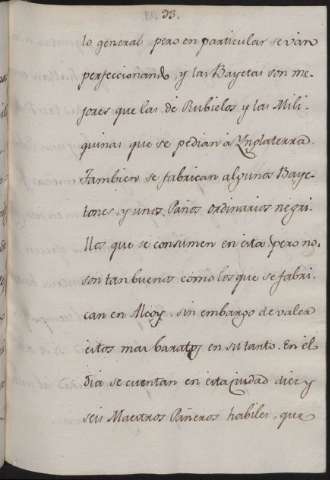 33.
lo general pero en particular se van
perfeccionando, y las Bayetas son me-
jores que las de Rubielos y las Mili-
quinas que se pedian à Ynglaterra.
Tambien se fabrican algunos Baye-
tones, y unos Paños ordinarios negri-
llos que se consumen en esta pero no
son tan buenos como los que se fabri-
can en Alcoy, sin embargo de valer
estos mas baratos en su tanto. En el
dia se cuentan en esta ciudad diez y
seis Maestros Pañeros habiles, que